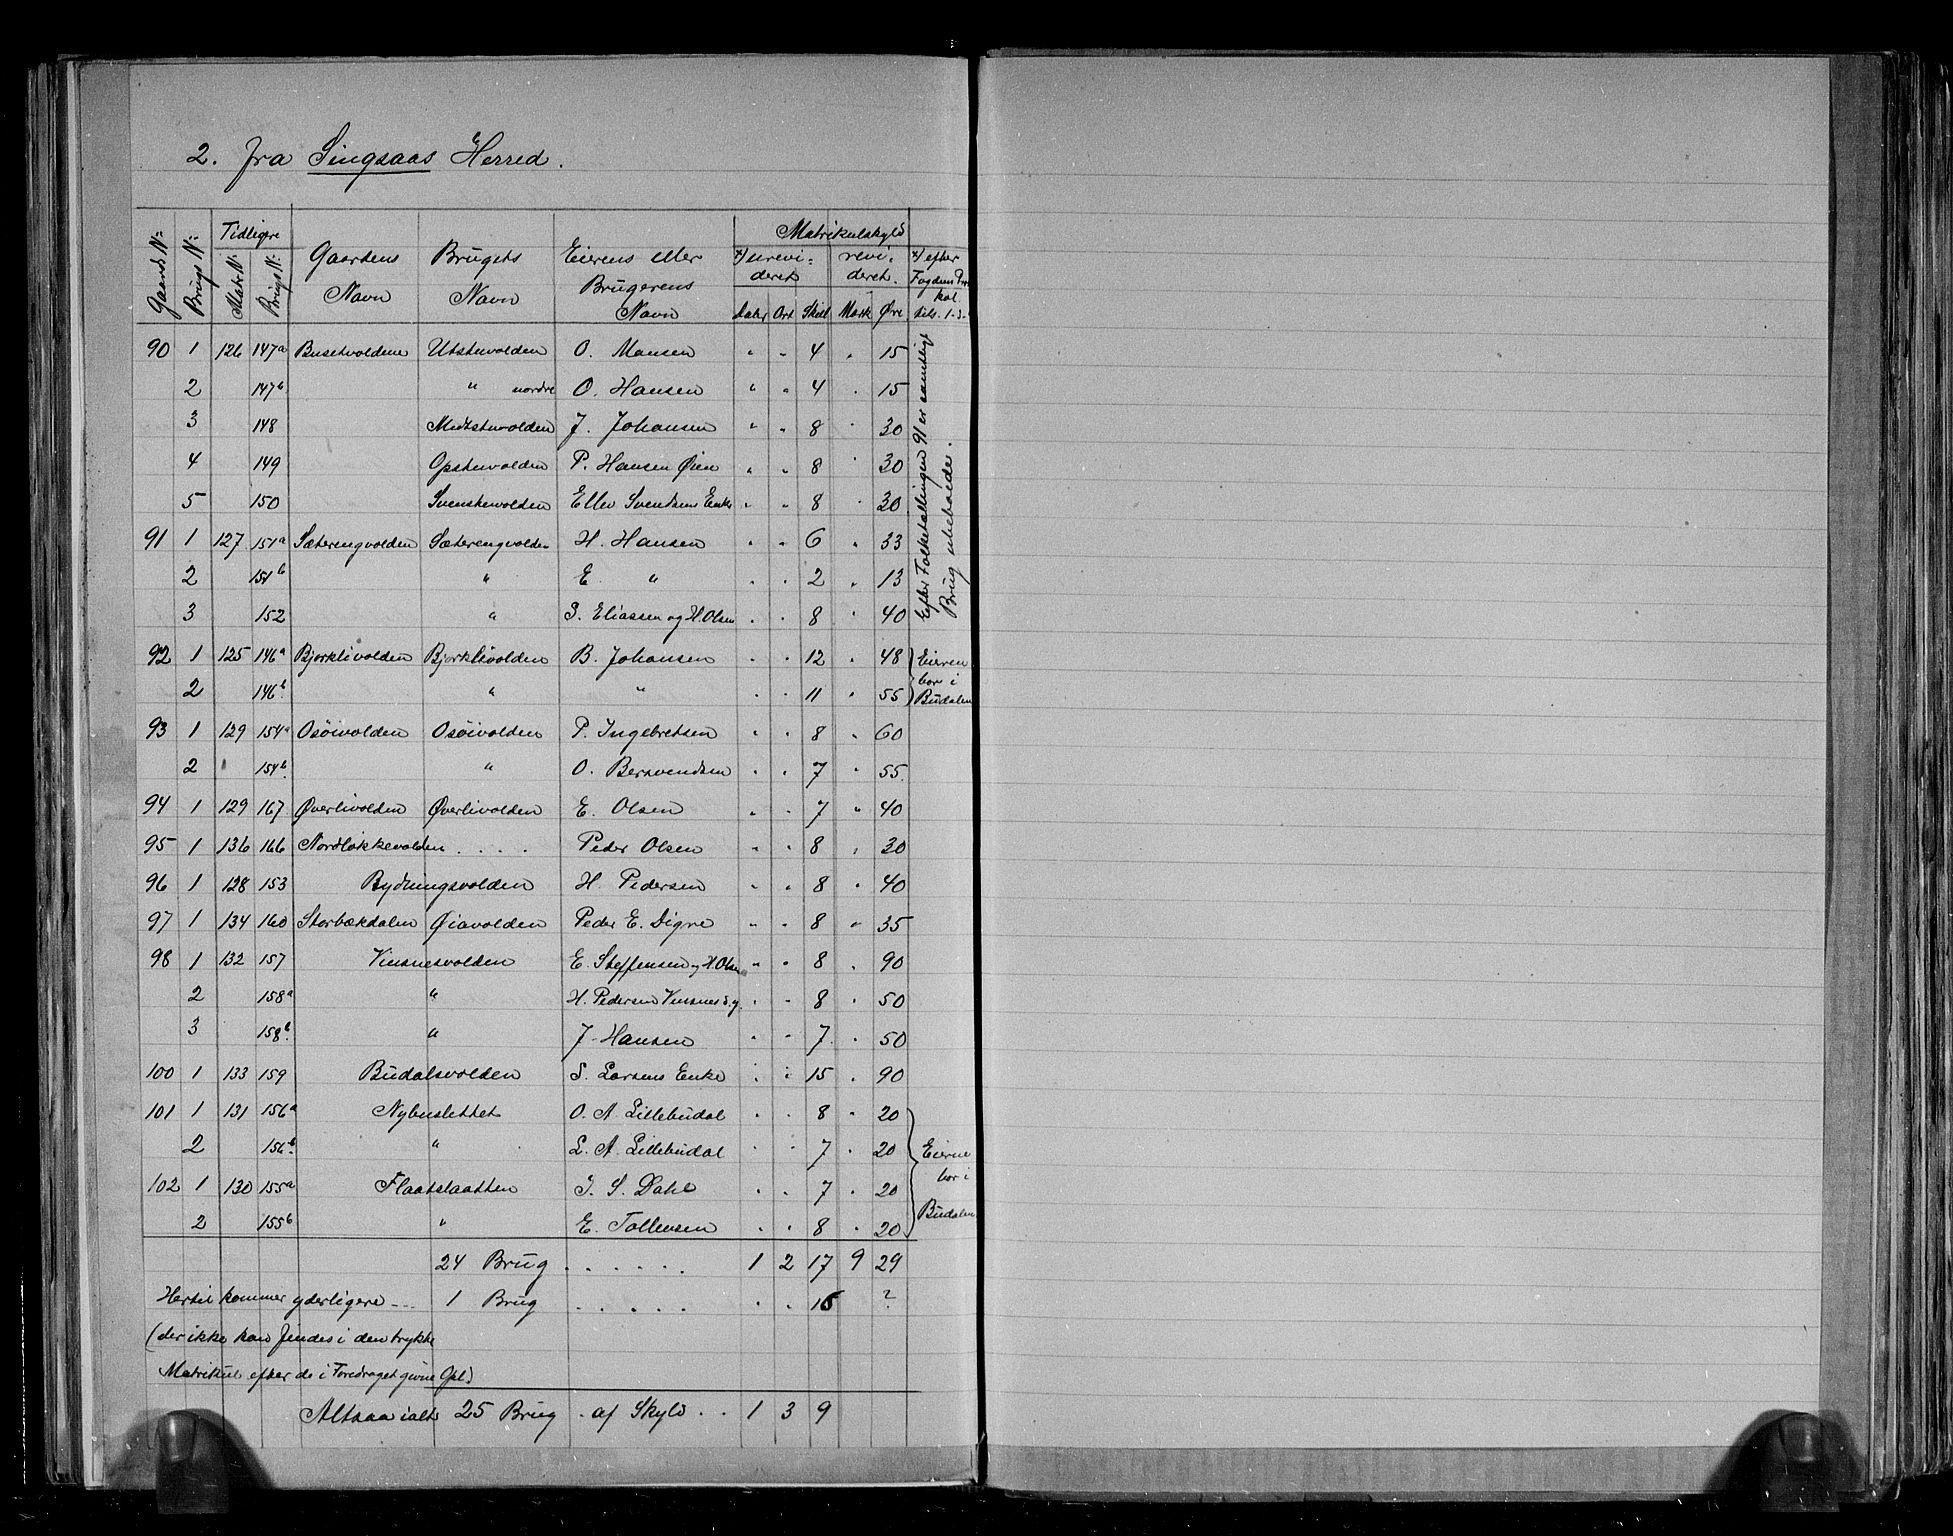 2. fra Singsaas Herred.
Gaards No. Brugs No. Tidligere Gaardens Navn Brugets Navn Eierens eller Brugerens Navn Matrikulskyld
Matr. No. Brugs No. *) urevideret revideret. *) efter Fogdens
Daler Ort Skill Mark Øre
90 1 126 147a Busetvoldene Utstuvolden O. Monsen " " 4 " 15
2 147b " nordre O. Hansen " " 4 " 15
3 148 Midtstuvolden J. Johansen " " 8 " 30
4 149 Opstuvolden P. Hansen Øien " " 8 " 30
5 150 Svenskevolden Ellev Svendsens Enke " " 8 " 30
91 1 127 151a Sæterengvolden Sæterengvolden H. Hansen " " 6 " 33
2 151b " E. " " " 2 " 13
3 152 " Eliassen og H. Olsen " " 8 " 40
Efter Folketællingen 91 er samtlige
Brug ubeboede.
92 1 125 146a Bjorklivolden Bjorklivolden B. Johansen " " 12 " 48
2 146b " " " " 11 " 55
Eieren
bor i
Budalen
93 1 129 154a Osöivolden Osöivolden P. Ingebretsen " " 8 " 60
2 154b " O. Bersvendsen " " 7 " 55
94 1 129 167 Øverlivolden Øverlivolden E. Olsen " " 7 " 40
95 1 136 166 Nordløkkevolden . . . . Peder Olsen " " 8 " 30
96 1 128 153 Rydningsvolden H. Pedersen " " 8 " 40
97 1 134 160 Storbækdalen Øiavolden Peder E. Digre " " 8 " 35
98 1 132 157 Vinsnesvolden E. Steffensen og H. Olsen " " 8 " 90
2 158a " H. Pedersen Vinsnes d.y. " " 8 " 50
3 158b " J. Hansen " " 7 " 50
100 1 133 159 Budalsvolden S. Larsens Enke " " 15 " 90
101 1 131 156a Nybuslettet O. A. Lillebudal " " 8 " 20
2 156b " L. A. Lillebudal " " 7 " 20
102 1 130 155a Flaatslaatten I. S. Dahl " " 7 " 20
2 155b " E. Tollevsen " " 8 " 20
Eierne
bor i
Budalen
24 Brug . . . . . . 1 2 17 9 29
Hertil kommer yderligere - - - 1 Brug . . . . . " " 16 ?
(der ikke kan findes i den trykte
Matrikul efter de i Foredraget givne Opl.)
Altsaa ialt 25 Brug . af Skyld . . 1 3 9